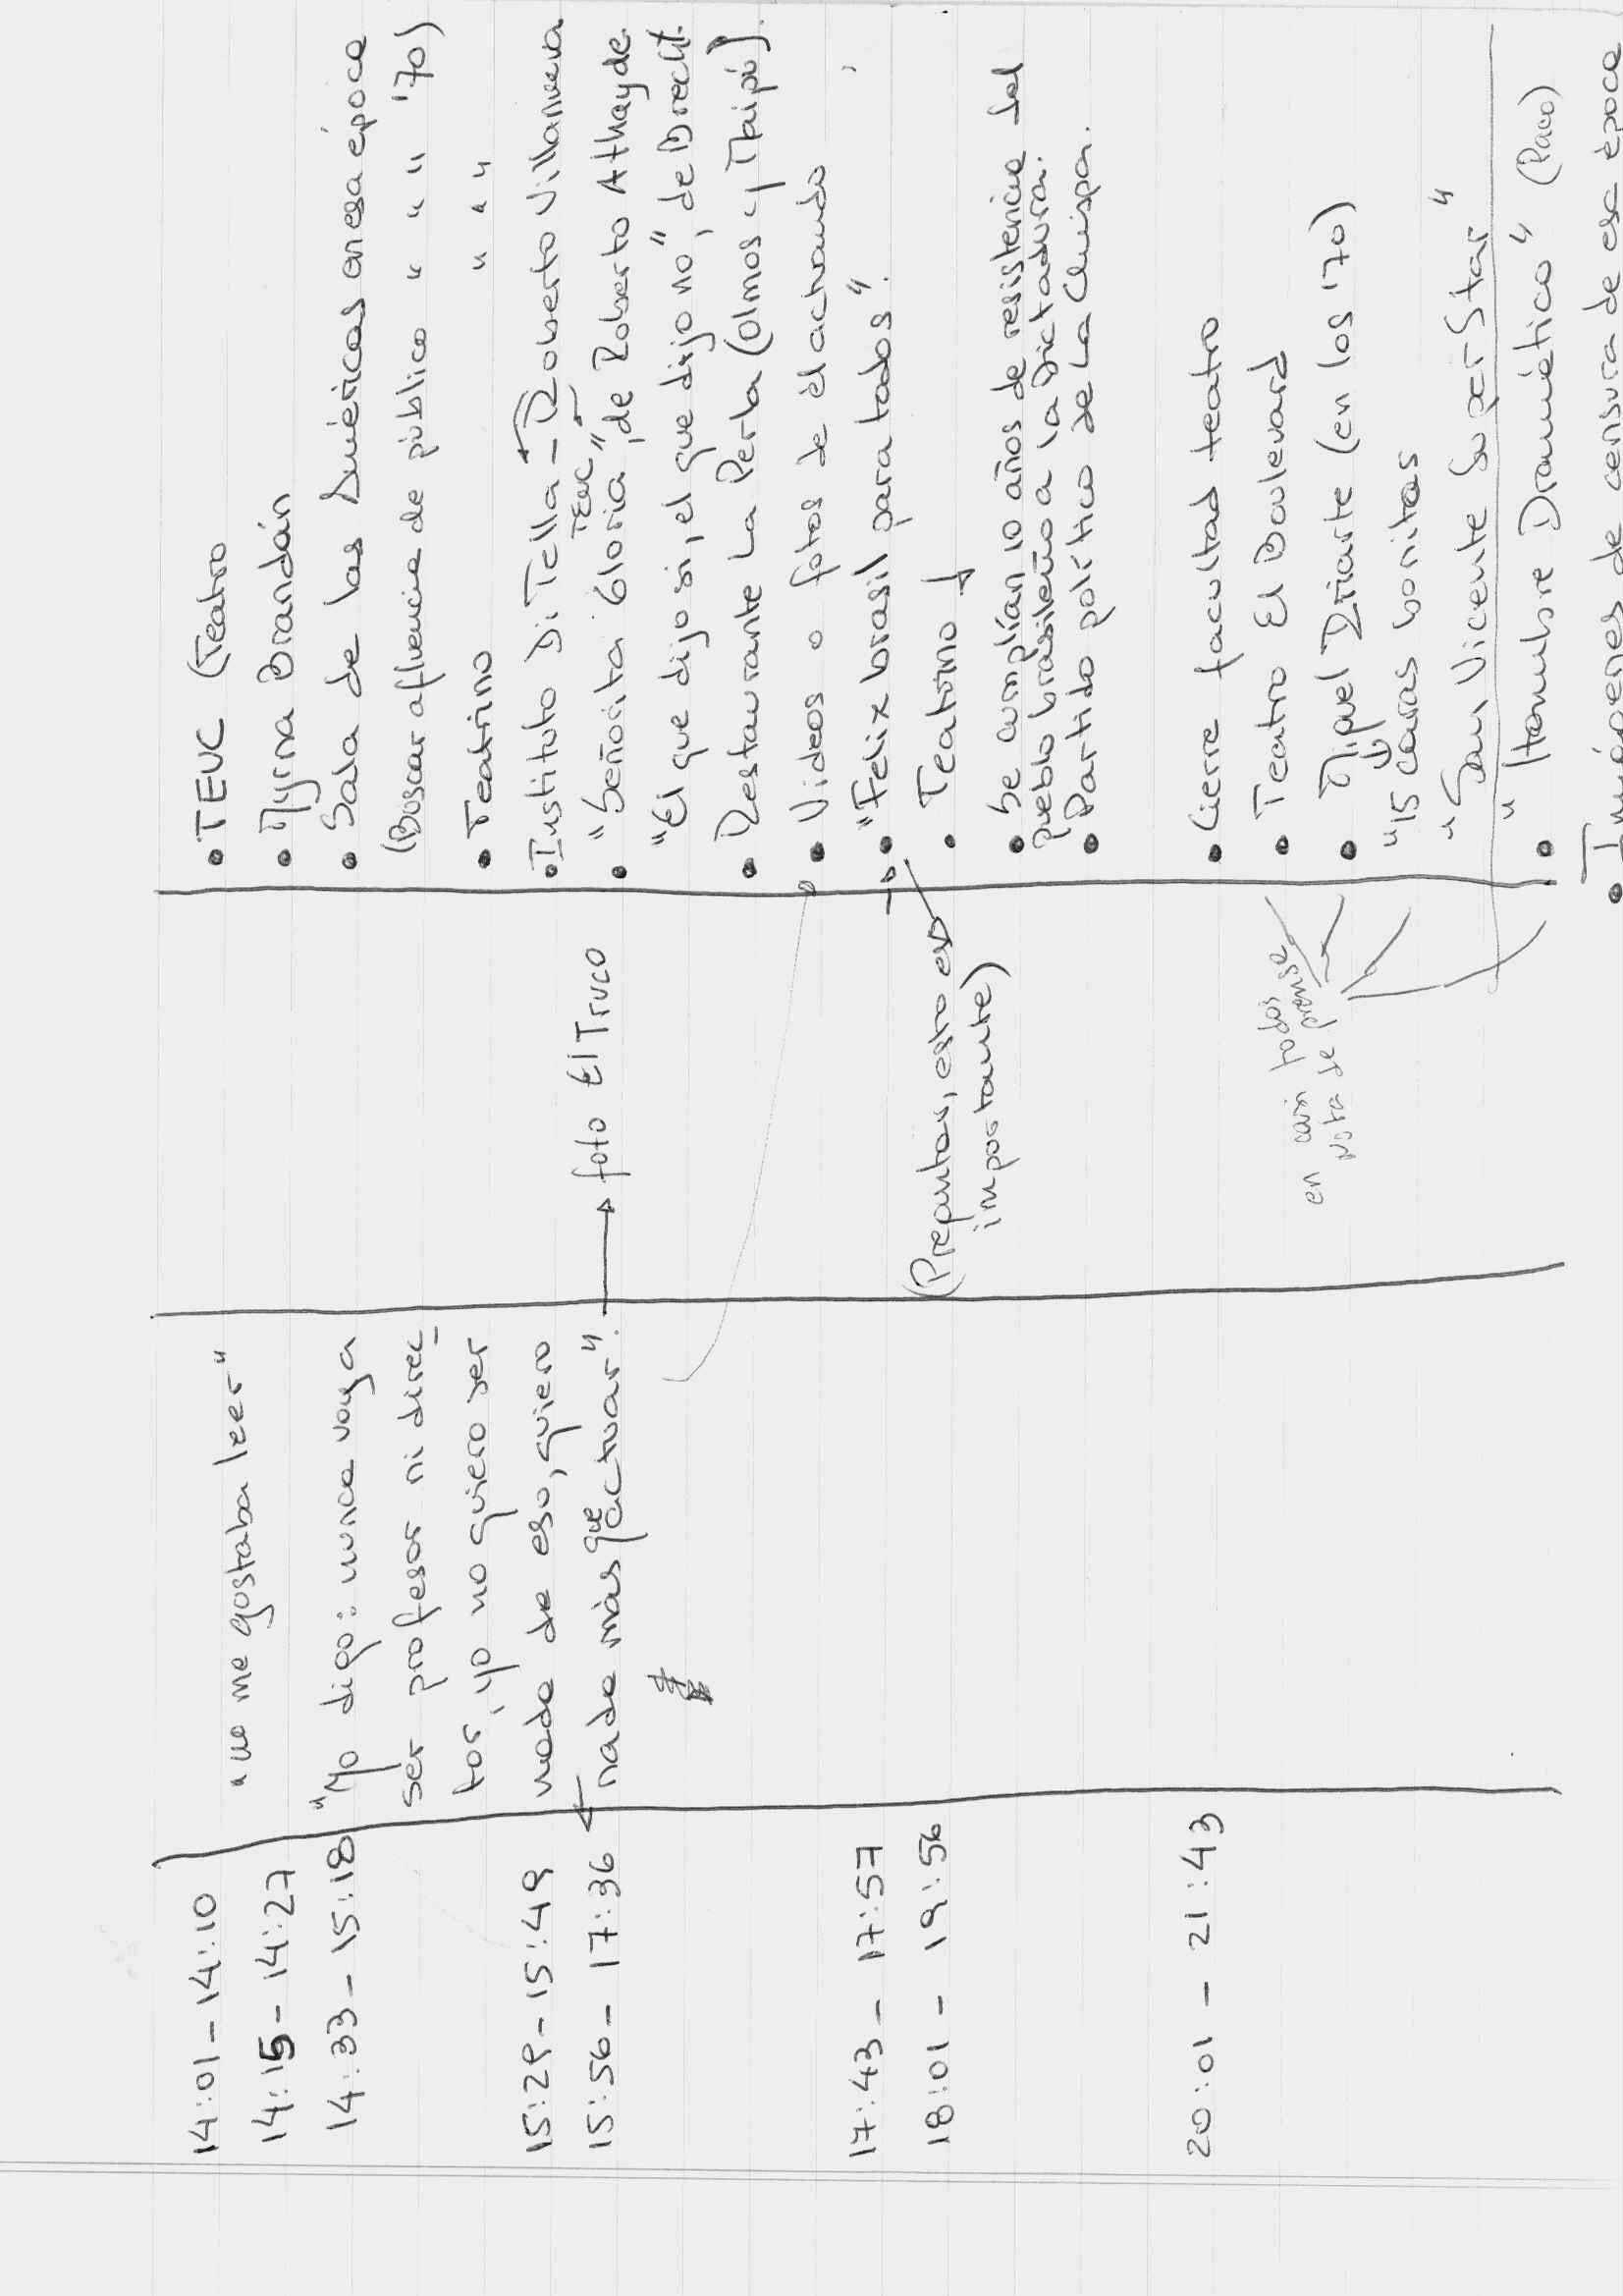 14:01 - 14:10
14:15 - 14:27
14:33 - 15:18
15:29 - 15:49
15:56 - 17:36
17:43 - 17:57
18:01 - 19:56
20:01 - 21:43
"no me gustaba leer"
"Yo digo: nunca voy a
ser profesor ni direc
tor, yo no quiero ser
nada de eso, quiero
nada más que actuar".
→ foto El Truco
(Preguntar, esto es
importante)
en casi todos
nota de prensa
• TEUC (Teatro
• Myrna Brandán
• Sala de las Américas en esa época
(Buscar afluencia de público " " " '70)
• Teatrino " " "
• Instituto Di Tella - Roberto Villanueva
TEUC
• "Señorita Gloria", de Roberto Athayde.
"El que dijo si, el que dijo no", de Brecht.
• Restaurante La Perla (Olmos y Maipú).
• Videos o fotos de el actuando
• "Felix brasil para todos".
• Teatrino
• Se cumplían 10 años de resistencia del
pueblo brasileño a la Dictadura.
• Partido político de La Chispa.
• Cierre facultad teatro
• Teatro El Boulevard
• Miguel Iriarte (en los '70)
"15 caras bonitas
"San Vicente Super Star"
• "Hombre Dramático" (Paco)
• Imágenes de censura de esa época